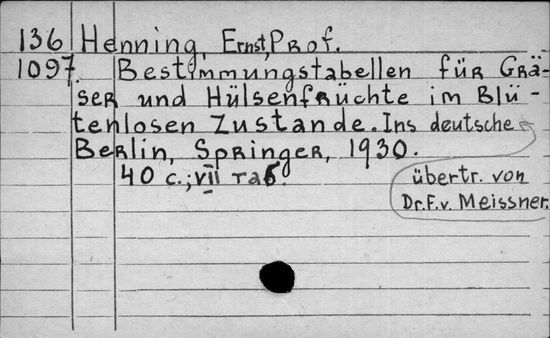 136 Henning, Ernst, Prof.
1097 Bestimmungstabellen für Grä-
ser und Hülsenfrüchte im Blü-
tenlosen Zustande. Ins deutsche
Berlin, Springer, 1930.
40 с.; VII таб.
übertr. von
Dr. F. v. Meissner.